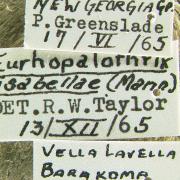 NEW GEORGIA GP.
P. Greenslade
17/VI/65
Eurhopalothrix
isabellae (Mann)
DET. R. W. Taylor
13/XII/65
VELLA LAVELLA
BARAKOMA